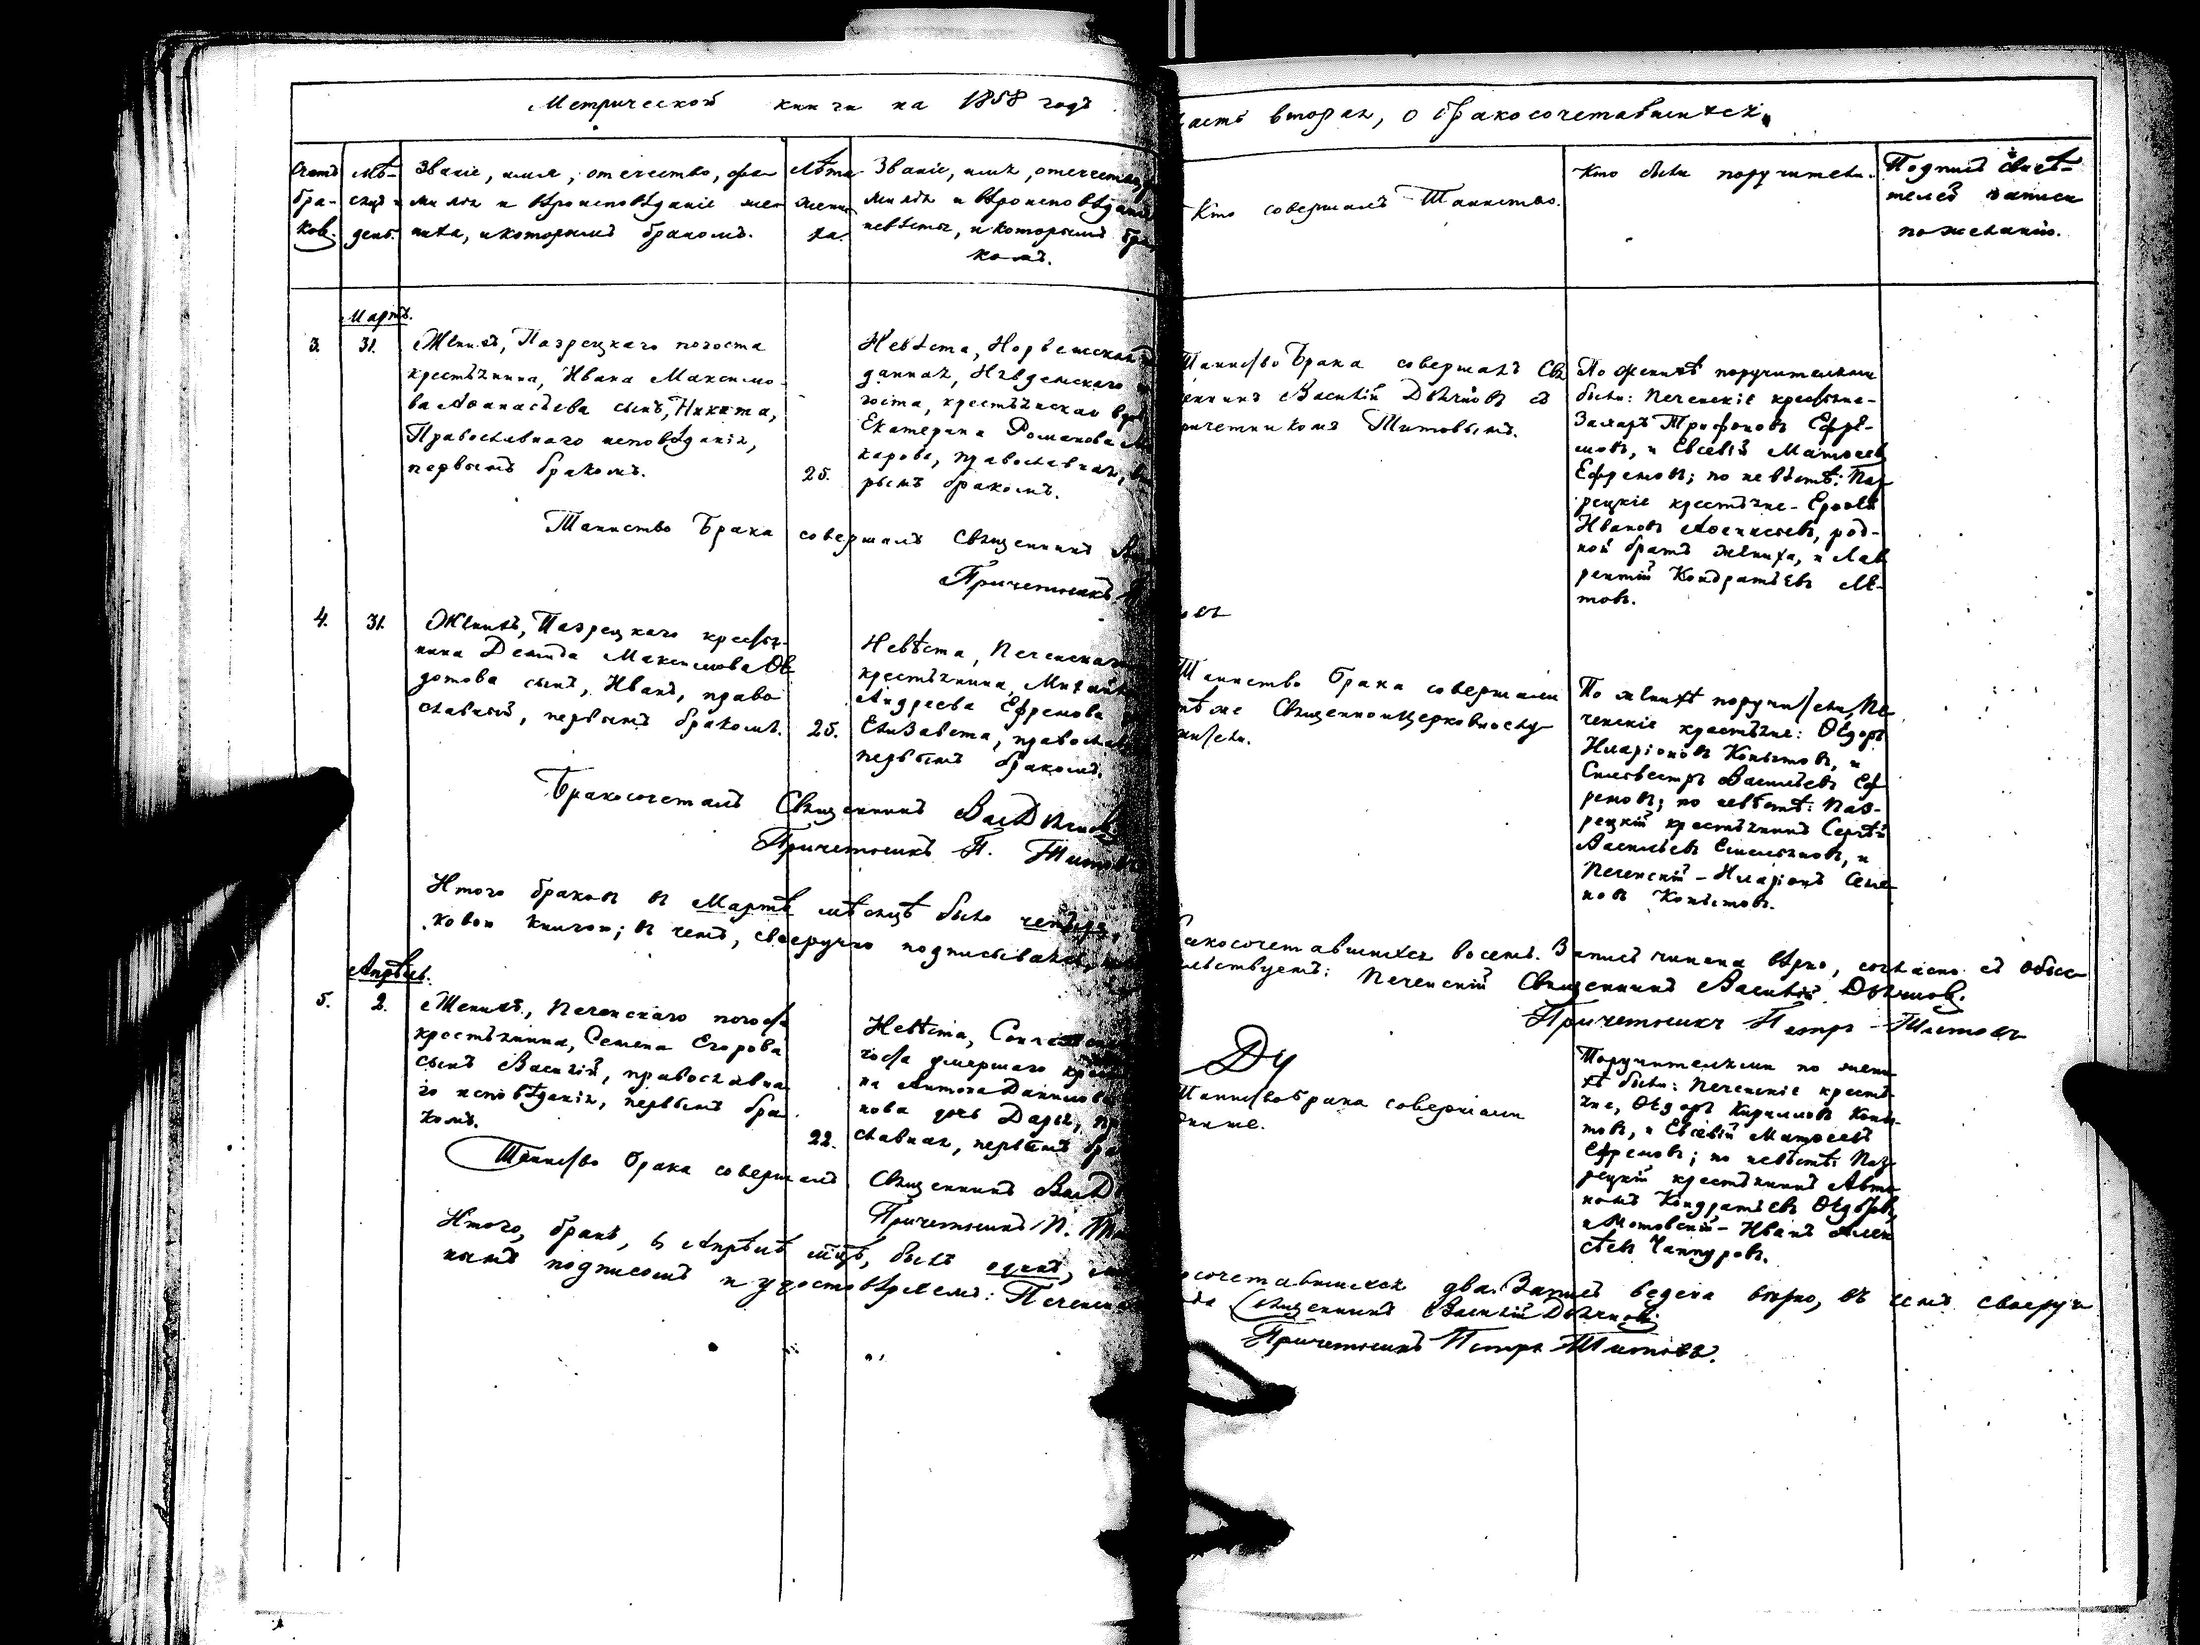 Метрической книги на 1858 годъ
часть вторая, о бракосочетавшихся.
Счетъ бра-ков.
Мѣ-сяцъ и день.
Званіе, имя, отечество, фа-
милія и вѣроисповѣданіе же-
ниха, и которымъ бракомъ.
Лѣта жениха.
Званіе, имя, отечество,
милія и вѣроисповѣданіе
невѣсты, и которымъ бра-
комъ.
Кто совершалъ Таинство.
Кто были поручители.
Подпись свидѣ-
телей записи
по желанію.
Мартъ.
3.
31.
Женихъ, Пазрецкаго погоста
крестьянина, Ивана Максимо-
ва Аѳанасьева сынъ, Никита,
Православнаго исповѣданія,
первымъ бракомъ.
25.
Невѣста, Норвежская
данная, Нявдемскаго
госта, крестьянская
Екатерина Романова
карова, православная,
рымъ бракомъ.
Таинство Брака совершалъ Свя
щенникъ Василій Дьячковъ съ
причетникомъ Титовымъ.
По женихѣ поручителями
были: Печенскіе крестьяне-
Захаръ Трифоновъ Ефре-
мовъ, и Евсевій Матѳеевъ
Ефремовъ; по невѣстѣ: Паз-
рецкіе крестьяне-
Ивановъ Аѳанасьевъ, род-
ной братъ жениха, и Лав
рентій Кондратьевъ
товъ.
Таинство Брака совершалъ Священникъ
Причетникъ
4.
31.
Женихъ, Пазрецкаго кресть-
янина Демида Максимова Ѳе
дотова сынъ, Иванъ, право
славный, первымъ бракомъ.
25.
Невѣста, Печенскаго
крестьянина, Михаила
Андреева Ефремова
Елизавета, православ
первымъ бракомъ.
Таинство Брака совершали
тѣ же Священноицерковнослу
жители.
По женихѣ поручители, Пе-
ченскіе крестьяне: Ѳедоръ
Иларіоновъ Копытовъ, и
Сильвестръ Васильевъ Еф
ремовъ; по невѣстѣ: Паз-
рецкій крестьянинъ Сергѣй
Васильевъ Емельяновъ, и
Печенскій - Иларіонъ Семе
новъ Копытовъ.
Бракосочеталъ Священникъ Вас Дьячковъ
Причетникъ П. Титовъ
Итого браковъ въ Мартѣ мѣсяцѣ было четыре,
бракосочетавшихся восемь. Запись чинена вѣрно, согласно съ обыс
ковою книгою; въ чемъ, своеручно подписываясь,
Печенскій Священникъ Василій Дьячковъ.
Причетникъ Петръ Титовъ
Апрѣль.
5.
2.
Женихъ, Печенскаго погоста
крестьянина, Семена Егорова
сынъ Василій, православна
го исповѣданія, первымъ бра
комъ.
22.
Невѣста,
госта умершаго
на Антона Данилова
нова дочь Дарья, пр
славная, первымъ бра
Таинство брака совершали
они же.
Поручителями по жени
хѣ были: Печенскіе кресть
яне, Ѳедоръ Кириловъ Копы
товъ, и Евсевій Матѳеевъ
Ефремовъ; по невѣстѣ: Паз
рецкій крестьянинъ Авто
номъ Кондратьевъ
и Мотовскій - Иванъ Алек
сѣевъ Чаппуровъ.
Таинство брака совершалъ Священникъ Вас Д
Причетникъ П.
Итого, бракъ, въ Апрѣлѣ мцѣ, былъ одинъ,
сочетавшихся два. Запись ведена вѣрно, въ чемъ своеруч
нымъ подписомъ и удостовѣряемъ:
Священникъ Василій Дьячковъ
Причетникъ Петръ Титовъ.